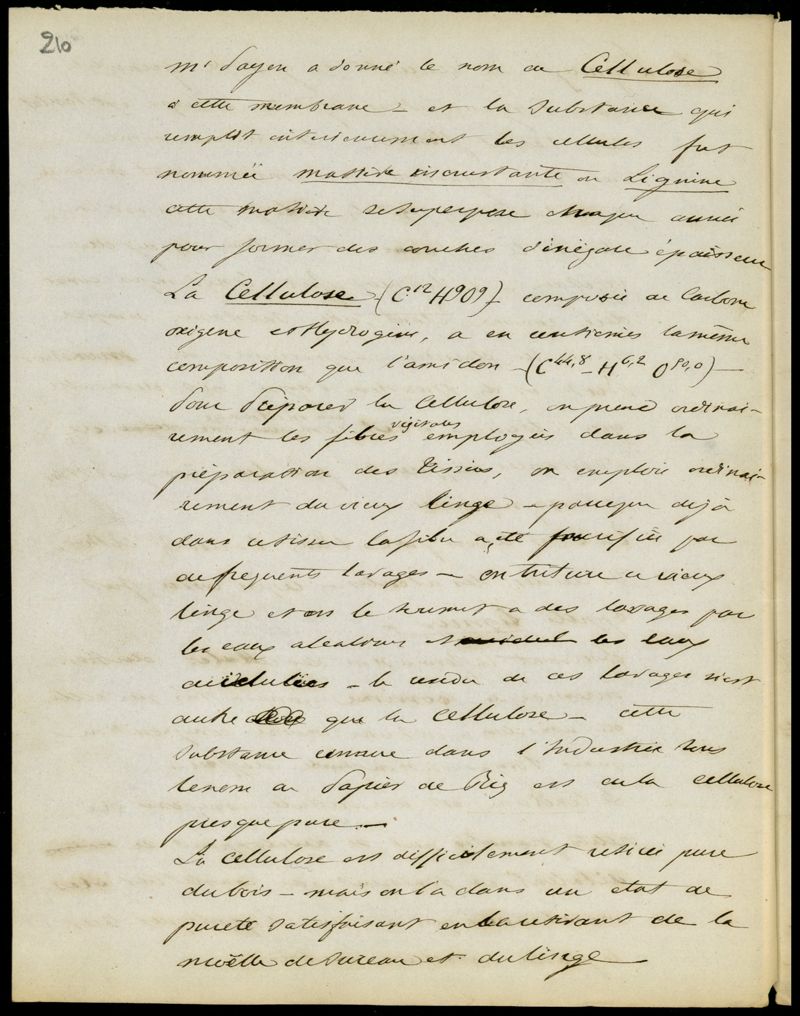 210
Mr Payen a donné le nom de Cellulose
à cette membrane – et la substance qui
remplit intérieurement les cellules fut
nommée matière incrustante ou Lignine
cette matière se superpose chaque année
pour former des couches d'inégale épaisseur
La Cellulose (C12 H9 O9) composée de Carbone
oxigène et Hydrogène, a en centièmes la même
composition que l'amidon – (C44,8 – H6,2 O50,0) –
Pour Préparer la Cellulose, on prend ordinai-
végétales
rement les fibres employées dans la
préparation des tissus, on emploie ordinai-
rement du vieux linge – parceque déjà
dans ce tissu la fibre a été purifiée par
de frequents lavages – on triture ce vieux
linge et on le soumet a des lavages par
les eaux alcalines et les eaux
acidulées – le résidu de ces lavages n'est
autre que la cellulose – cette
substance connue dans l'Industrie sous
le nom de Papier de Riz est de la cellulose
presque pure. –
La cellulose est difficilement retirée pure
du bois – mais on l'a dans un état de
pureté satisfaisant en la retirant de la
moëlle de sureau et du linge –